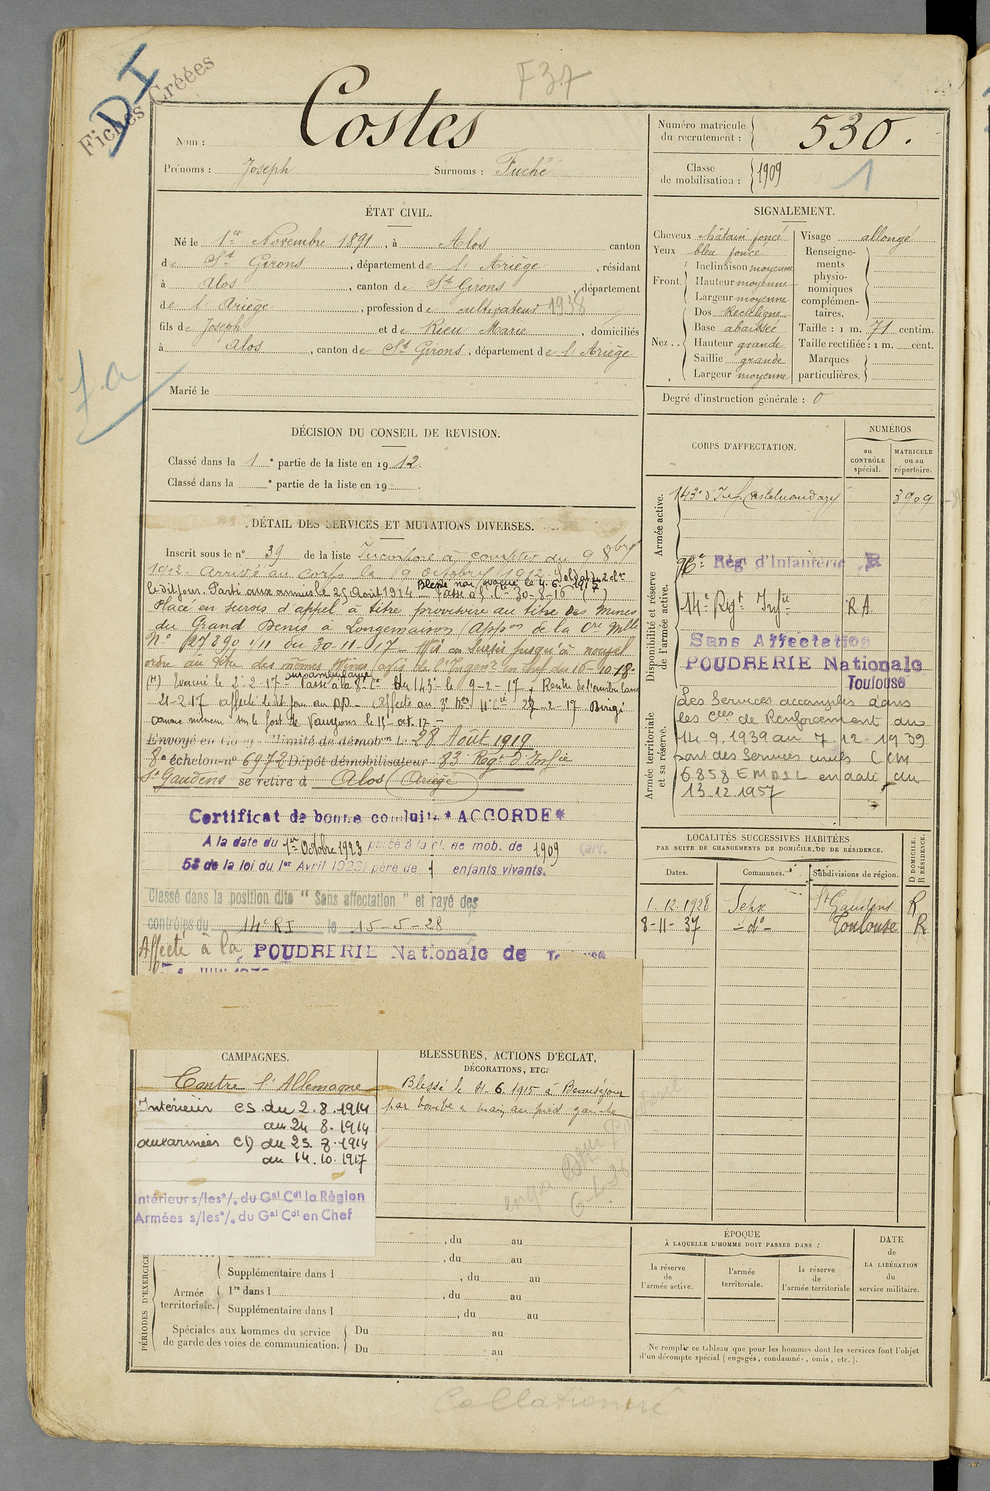 F37
DI
Fiches Créées
Nom : Costes
Prénoms : Joseph Surnoms : Fuché
Numéro matricule du recrutement : 530.
Classe de mobilisation : 1909
1
ÉTAT CIVIL.
Né le 1er Novembre 1891, à Alos canton
de St Girons, département de l'Ariège, résidant
à Alos, canton de St Girons, département
de l'Ariège, profession de cultivateur 1938
fils de Joseph et de Rieu Marie, domiciliés
à Alos, canton de St Girons, département de l'Ariège
Marié le
SIGNALEMENT.
Cheveux châtain foncé
Yeux bleu foncé
Front. Inclinaison moyenne
Hauteur moyenne
Largeur moyenne
Nez . . Dos Rectiligne
Base abaissée
Hauteur grande
Saillie grande
Largeur moyenne
Visage allongé
Renseignements physionomiques complémentaires.
Taille : 1 m. 71 centim.
Taille rectifiée : 1 m. cent.
Marques particulières.
Degré d'instruction générale : 0
DÉCISION DU CONSEIL DE REVISION.
Classé dans la 1 e partie de la liste en 1912.
Classé dans la e partie de la liste en 19
DÉTAIL DES SERVICES ET MUTATIONS DIVERSES.
Inscrit sous le n° 39 de la liste Incorporé à compter du 9 8bre
1912. Arrivé au corps le 9 octobre 1912 Soldat de 2e cl.
le dit jour. Parti aux armées le 25 Août 1914 - Passé à 5 Cie 30-8-16
Blessé non évacué le 4.6.1917
Placé en sursis d'appel à titre provisoire au titre des Mines
du Grand Denis à Longemaison (Appon de la Cie Mlle
N° 127890 1/11 du 30-11-17 - Mis en sursis jusqu'à nouvel
ordre au titre des mêmes Mines
(H) Évacué le 2-2-17 - Passé à la 8e Cie du 143e le 9-2-17
21-2-17 affecté le dit jour au DD -
comme mineur sur le fort de Vaujours le 11 oct. 17 -
Envoyé en limité de démobon le 28 Août 1919
8e échelon n° 6972 Dépôt démobilisateur 83 Regt d'Infie
St Gaudens se retire à Alos (Ariège)
Certificat de bonne conduite "ACCORDÉ"
A la date du 1er Octobre 1923 passé à la cl. de mob. de 1909 (art.
58 de la loi du 1er Avril 1923) père de 1 enfants vivants.
Classé dans la position dite " Sans affectation " et rayé des
contrôles du 14e RI le 15-5-28
Affecté à la POUDRERIE Nationale de
CORPS D'AFFECTATION.
NUMÉROS
au CONTRÔLE spécial.
MATRICULE ou au répertoire.
Armée active.
143e d'Inf Castelnaudary 3909
Disponibilité et réserve de l'armée active.
Rég d'Infanterie
14e Rgt Infie R.A.
Sans Affectation
POUDRERIE Nationale
Toulouse
Armée territoriale et sa réserve.
Les Services accomplis dans
les Cies de Renforcement du
14.9.1939 au 7.12.1939
sont des Services civils C CM
6858 EMDSL en date du
13.12.1957
LOCALITÉS SUCCESSIVES HABITÉES
PAR SUITE DE CHANGEMENTS DE DOMICILE OU DE RÉSIDENCE.
Dates. Communes. Subdivisions de région. D DOMICILE. R RÉSIDENCE.
1.12.1928 Seix St Gaudens R
8-11-37 - do - Toulouse R
CAMPAGNES.
Contre l'Allemagne
Intérieur CS. du 2.8.1914
au 24 8.1914
aux armées CD du 25.8.1914
au 14.10.1917
Intérieur s/les o/. du Gal Cdt la Région
Armées s/les o/. du Gal Cdt en Chef
BLESSURES, ACTIONS D'ÉCLAT,
DÉCORATIONS, ETC.
Blessé le 4.6.1915 à Beauséjour
par bombe à main au pied gauche
PÉRIODES D'EXERCICES
, du au
, du au
Supplémentaire dans l , du au
Armée territoriale. 1re dans l , du au
Supplémentaire dans l , du au
Spéciales aux hommes du service de garde des voies de communication. Du au
Du au
ÉPOQUE
À LAQUELLE L'HOMME DOIT PASSER DANS :
la réserve de l'armée active.
l'armée territoriale.
la réserve de l'armée territoriale
DATE de LA LIBÉRATION du service militaire.
Ne remplir ce tableau que pour les hommes dont les services font l'objet
d'un décompte spécial (engagés, condamnés, omis, etc.).
Collationné